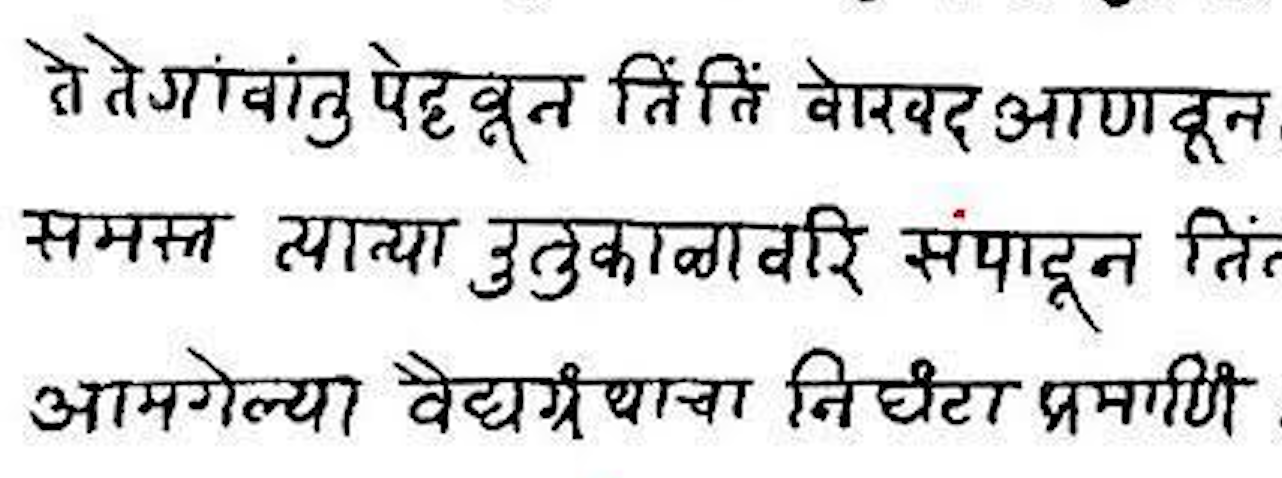 ते ते गांवांतु पेट्टवून तिं तिं वोखद आणवून
समस्त त्या त्या रुतु काळावरि संपादून तिं
आमगेल्या वैद्यग्रंथाचा निघंटा